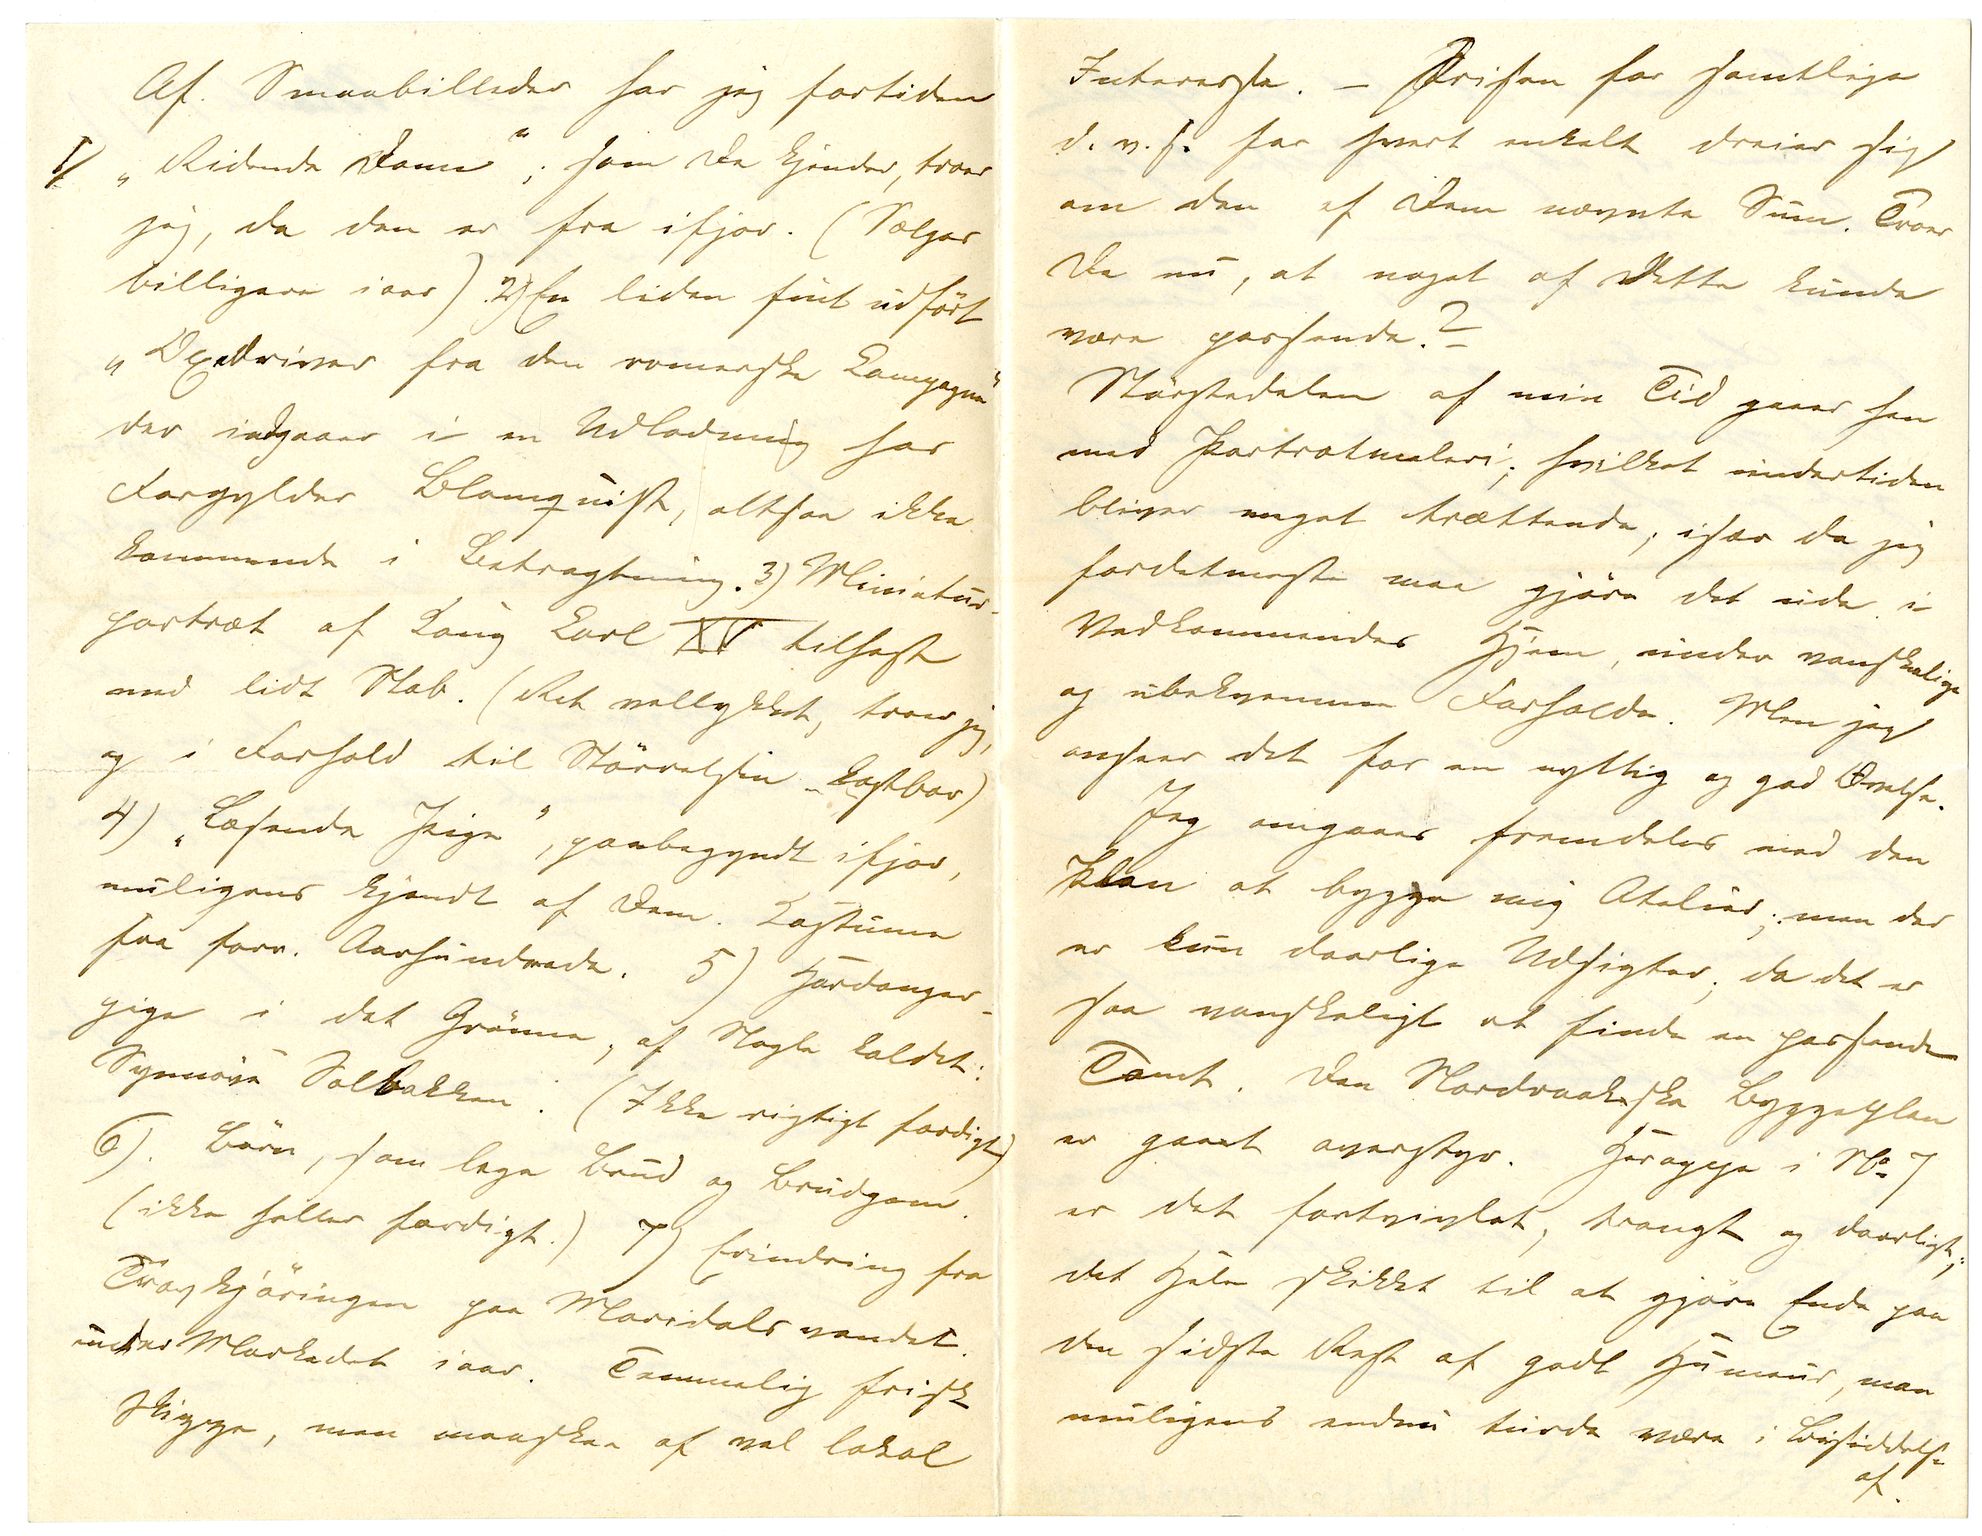 Af. Smaabilleder har jeg fortiden
1/ „Ridende Dame“, som De kjender, troer
jeg, da den er fra ifjor. (Sælges
billigere iaar) 2) En liden fint udført
„Oxedriver fra den romerske Campagne“
der indgaaer i en Udlodning hos
Forgylder Blomquist, altsaa ikke
kommende i Betragtning. 3) Miniatur-
portræt af Kong Carl XV tilhest
med lidt Stab. (Ret vellykket, troer jeg,
og i Forhold til Størrelsen kostbar)
4) „Læsende Pige“, paabegyndt ifjor,
muligens kjendt af Dem. Costume
fra forr. Aarhundrede. 5) Hardanger-
pige i det Grønne, af Nogle kaldet:
Synnøve Solbakken. (Ikke rigtigt færdigt)
6). Børn, som lege Brud og Brudgom.
(ikke heller færdigt.) 7) Erindring fra
Travkjøringen paa Maridalsvandet.
under Markedet iaar. Temmelig frisk
Skizze, men maaskee af vel lokal
Interesse. – Prisen for samtlige
d. v. s. for hvert enkelt dreier sig
om den af Dem nævnte Sum. Troer
De nu, at noget af Dette kunde
være passende?–
Størstedelen af min Tid gaaer hen
med Portrætmaleri; hvilket undertiden
bliver meget trættende, især da jeg
fordetmeste maa gjøre det ude i
Vedkommendes Hjem, under vanskelige
og ubekvemme Forholde. Men jeg
anseer det for en nyttig og god Øvelse.
Jeg omgaaes fremdeles med den
Plan at bygge mig Atelier; men der
er kun daarlige Udsigter, da det er
saa vanskeligt at finde en passende
Tomt. Den Nordraakske Byggeplan
er gaaet overstyr. Heroppe i No 7
er det fortvivlet, trangt og daarligt;
det Hele skikket til at gjøre Ende paa
den sidste Rest af godt Humeur, man
muligens endnu turde være i Besiddelse
af.